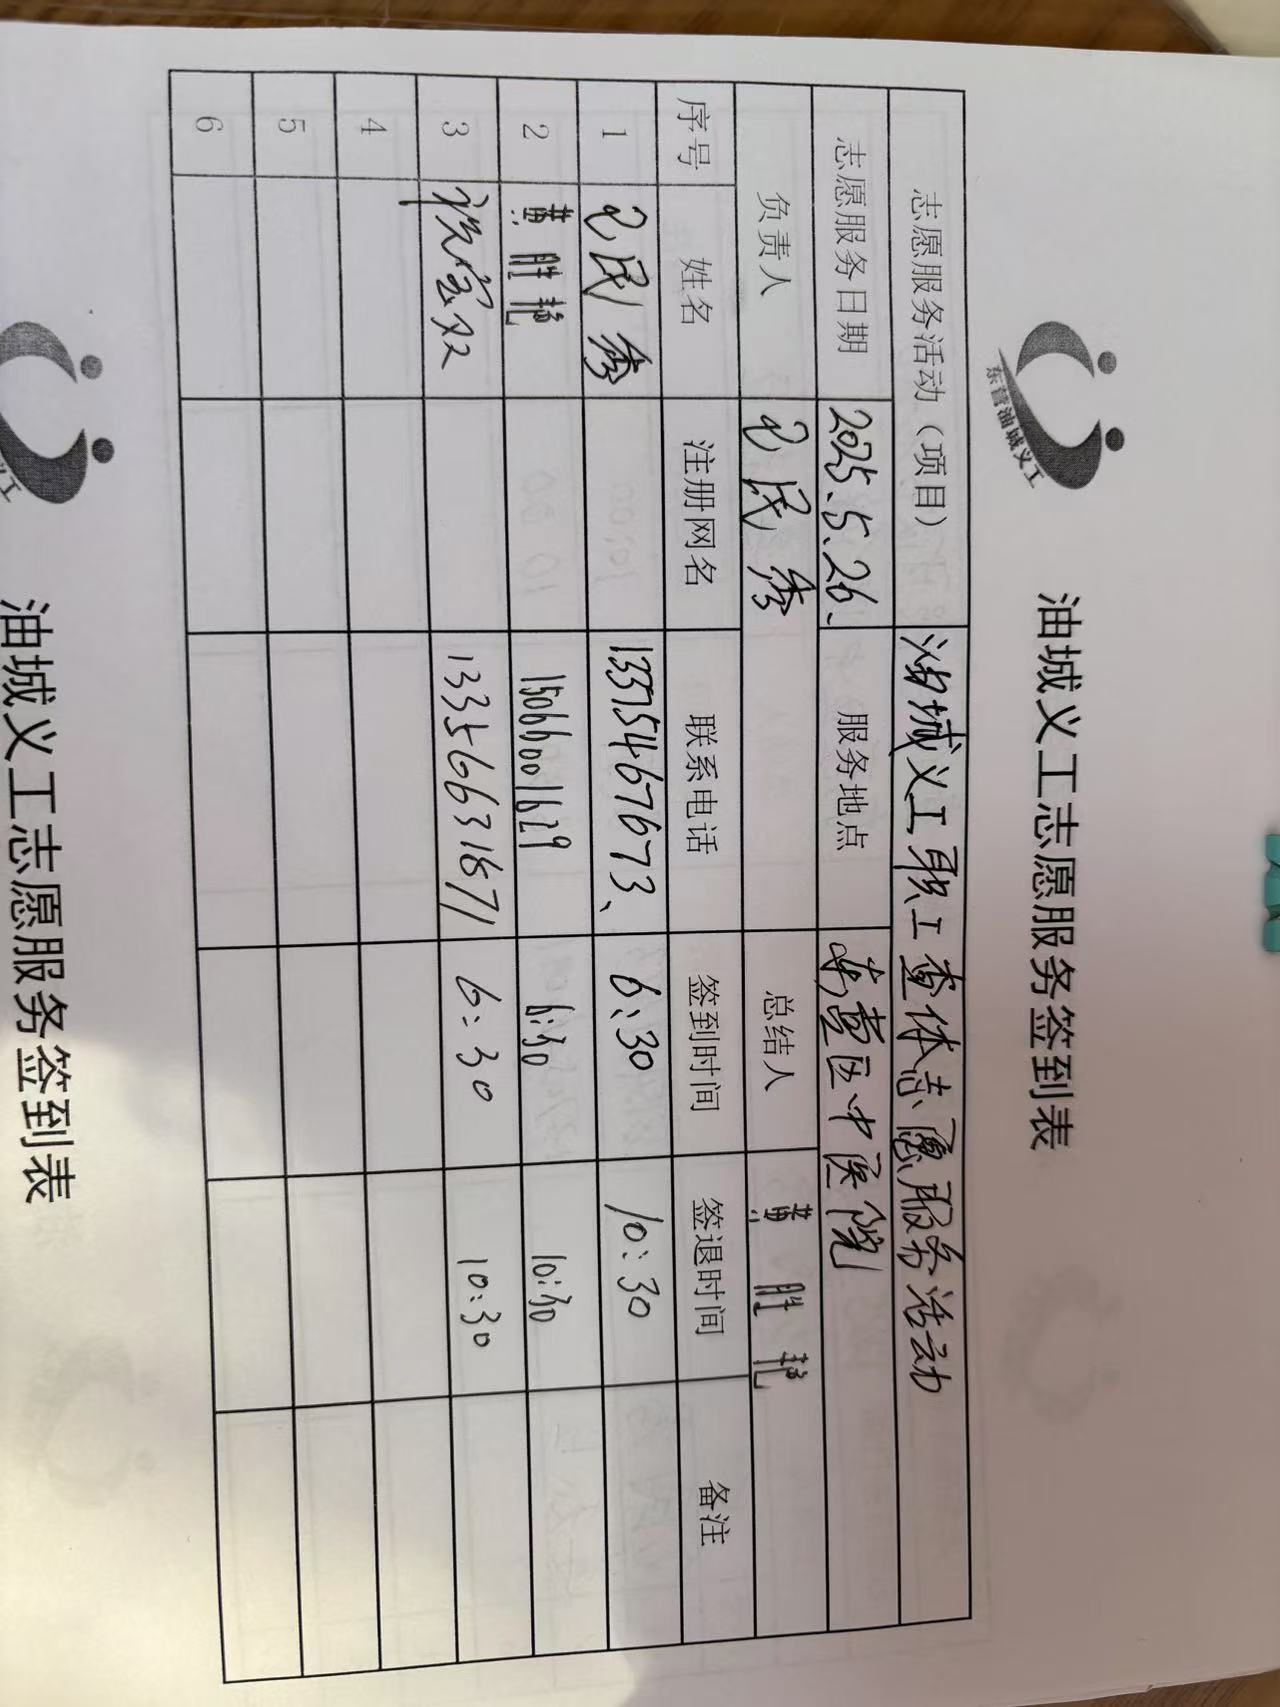 东营油城义工
油城义工志愿服务签到表
志愿服务活动（项目） 油城义工职工查体志愿服务活动
志愿服务日期 2025.5.26. 服务地点 东营区中医院
负责人 民秀 总结人 黄胜艳
序号 姓名 注册网名 联系电话 签到时间 签退时间 备注
1 民秀 13375467673、 6:30 10:30
2 黄胜艳 15066001629 6:30 10:30
3 13356631871 6:30 10:30
4
5
6
油城义工志愿服务签到表